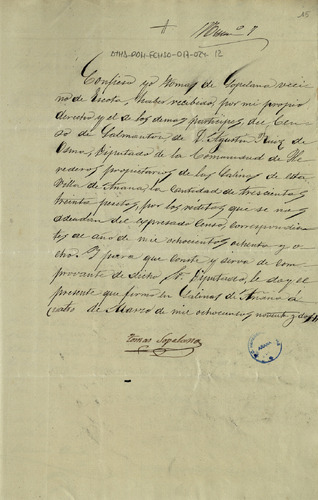 15
Numº 8
ATHA-DAH-FCHSO-017-024-12
Confieso yo Tomas de Sopelana veci
no de Escota, haber recibido, por mi propio
derecho y el de los demas participes, del Cen
so de Salmanton de D. Agustin Ruiz de
Osma, Diputado de la Comunidad de He
rederos propietarios de las Salinas de esta
Villa de Añana, la Cantidad de trescientas
treinta pesetas, por los réditos que se nos
adeudan del expresado Censo, correspondien
tes al año de mil ochocientos ochenta y o
cho. Y para que conste y sirva de com
probante de dicho Sr. Diputado, le doy el
presente que firmo en Salinas de Añana á
cuatro de Marzo de mil ochocientos noventa y
Tomas Sopelana